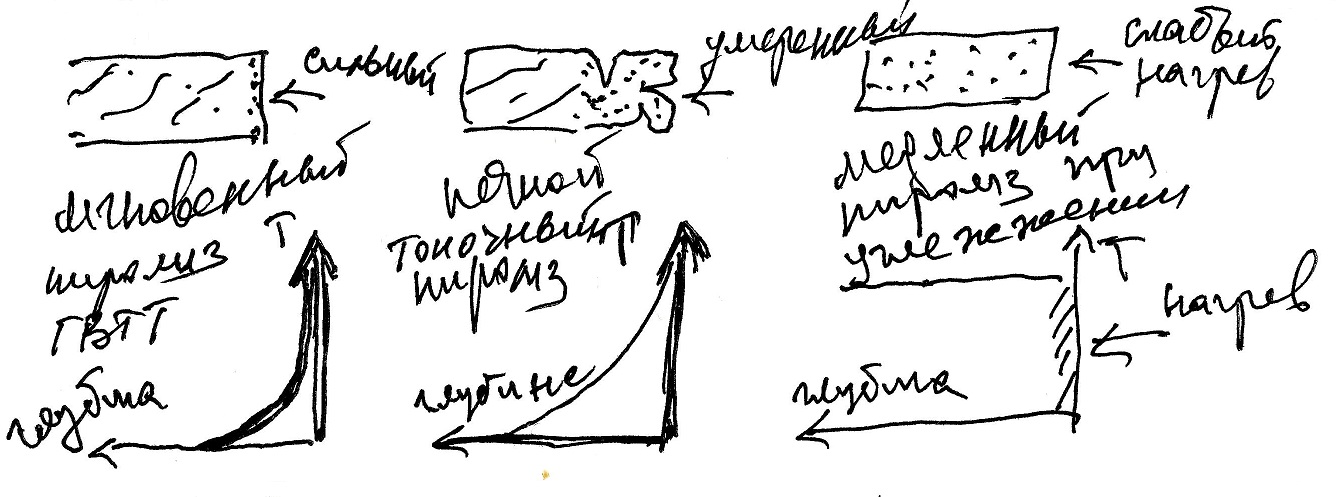 сильный
умеренный
слабый
нагрев
мгновенный
пиролиз
ГВТТ
Т
глубина
печной
топочный
пиролиз
Т
глубине
медленный
пиролиз при
углежжении
Т
нагрев
глубина